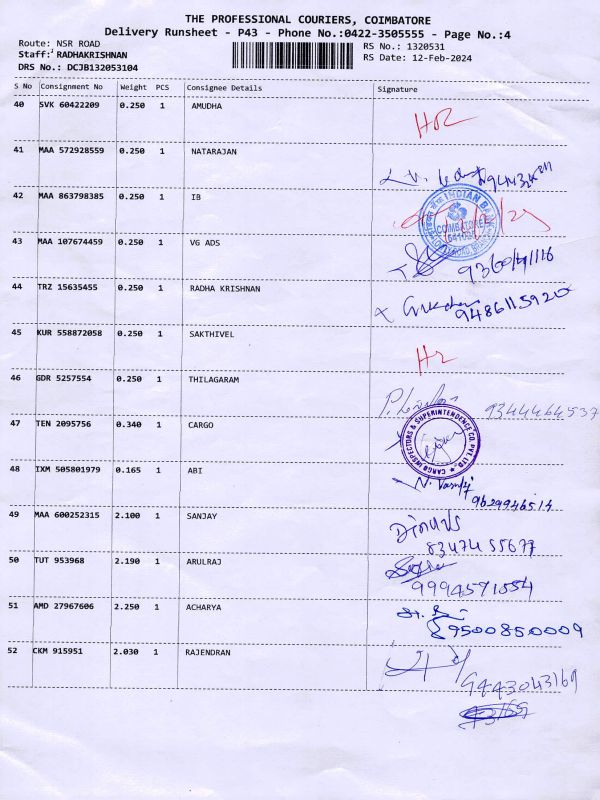 THE PROFESSIONAL COURIERS, COIMBATORE
Delivery Runsheet - P43 - Phone No.:0422-3505555 - Page No.:4
Route: NSR ROAD
RS No.: 1320531
Staff: RADHAKRISHNAN
RS Date: 12-Feb-2024
DRS No.: DCJB132053104
S No Consignment No Weight PCS Consignee Details Signature
40 SVK 60422209 0.250 1 AMUDHA
41 MAA 572928559 0.250 1 NATARAJAN
42 MAA 863798385 0.250 1 IB
INDIAN BANK
COIMBATORE
43 MAA 107674459 0.250 1 VG ADS
44 TRZ 15635455 0.250 1 RADHA KRISHNAN
9486115920
45 KUR 558872058 0.250 1 SAKTHIVEL
46 GDR 5257554 0.250 1 THILAGARAM
9344464537
47 TEN 2095756 0.340 1 CARGO
CARGO INSPECTORS & SUPERINTENDENCE CO. PVT. LTD.
48 IXM 505801979 0.165 1 ABI
9629946514
49 MAA 600252315 2.100 1 SANJAY
8347455677
50 TUT 953968 2.190 1 ARULRAJ
9994571554
51 AMD 27967606 2.250 1 ACHARYA
9500850009
52 CKM 915951 2.030 1 RAJENDRAN
9443043169